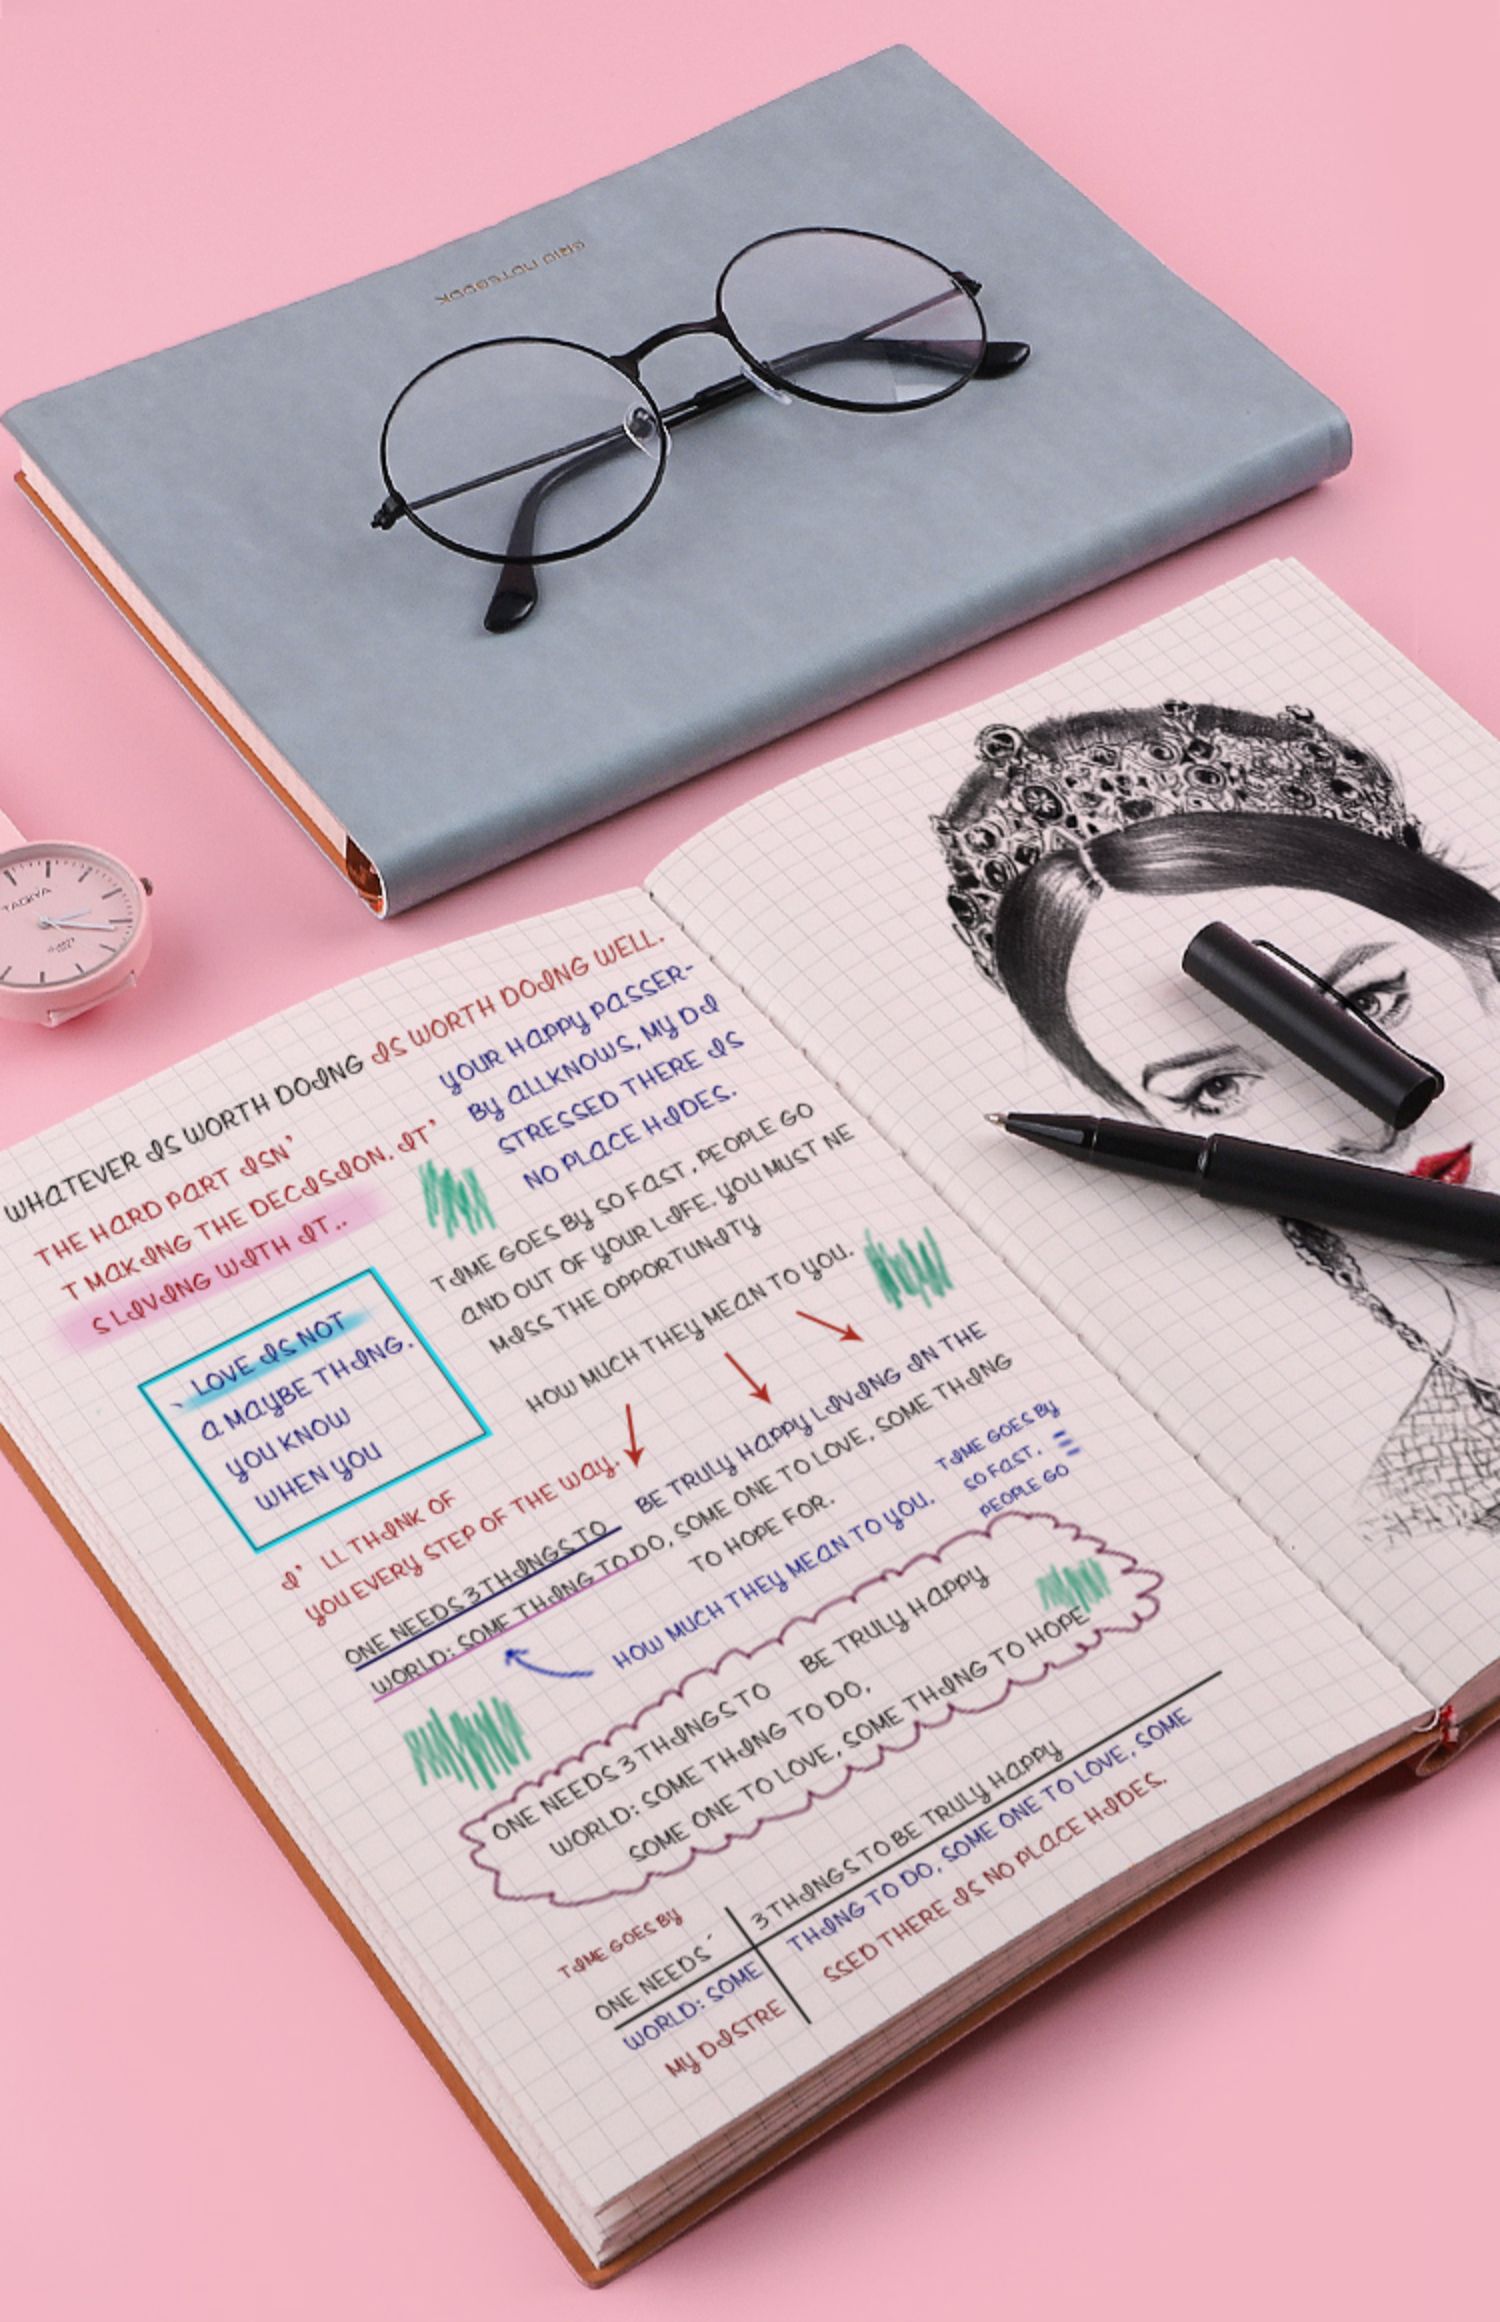 GRID NOTEBOOK
TAOKYA
WHATEVER IS WORTH DOING IS WORTH DOING WELL.
THE HARD PART ISN'
T MAKING THE DECISION. IT'
S LIVING WITH IT..
YOUR HAPPY PASSER-
BY ALLKNOWS, MY DI
STRESSED THERE IS
NO PLACE HIDES.
LOVE IS NOT
A MAYBE THING.
YOU KNOW
WHEN YOU
TIME GOES BY SO FAST, PEOPLE GO
AND OUT OF YOUR LIFE. YOU MUST NE
MISS THE OPPORTUNITY
HOW MUCH THEY MEAN TO YOU.
I' LL THINK OF
YOU EVERY STEP OF THE WAY.
ONE NEEDS 3 THINGS TO BE TRULY HAPPY LIVING IN THE
WORLD: SOME THING TO DO, SOME ONE TO LOVE, SOME THING
TO HOPE FOR.
TIME GOES BY
SO FAST,
PEOPLE GO
HOW MUCH THEY MEAN TO YOU.
ONE NEEDS 3 THINGS TO BE TRULY HAPPY
WORLD: SOME THING TO DO,
SOME ONE TO LOVE, SOME THING TO HOPE
TIME GOES BY
ONE NEEDS' 3 THINGS TO BE TRULY HAPPY
WORLD: SOME THING TO DO, SOME ONE TO LOVE, SOME
MY DISTRE SSED THERE IS NO PLACE HIDES.